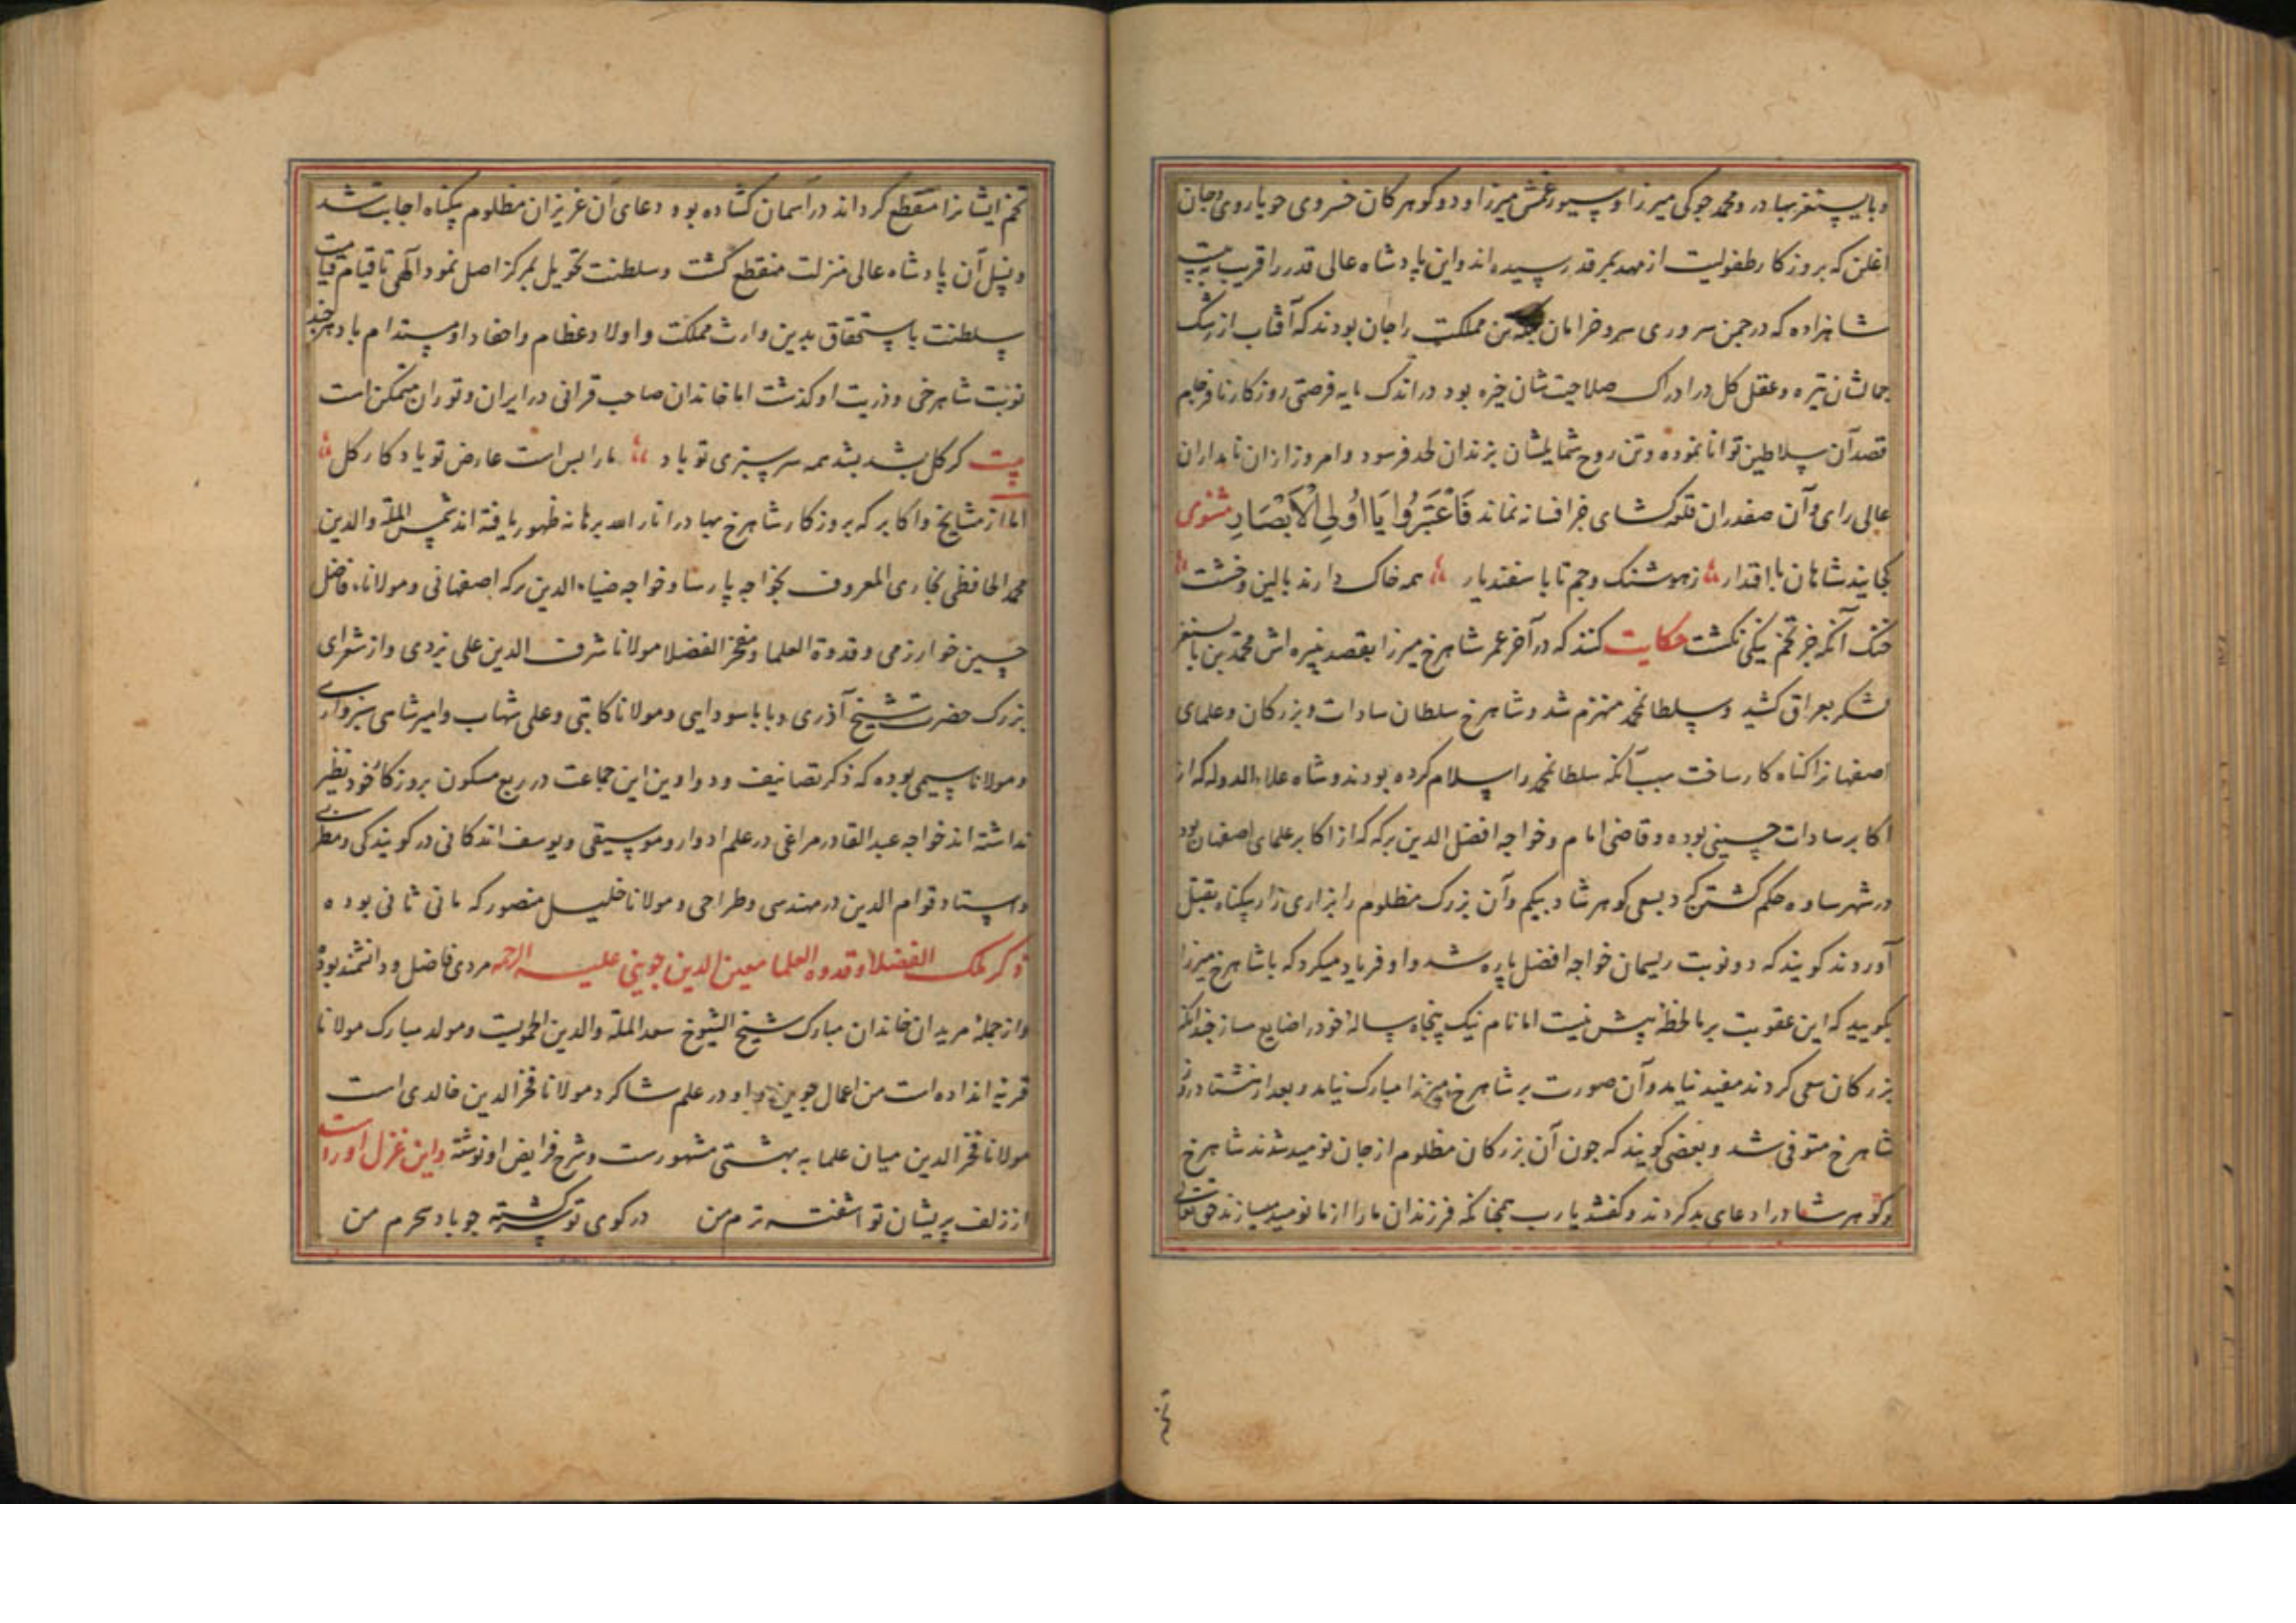 و بایسنغر بهادر و محمد جوکی میرزا و سیورغتمش میرزا و دو کوهر کان خسروی جویا روی و جان
اغلن که بروزکار طفولیت از مهد بمرقد رسیده اند و این پادشاه عالی قدر را قریب بیست
شاهزاده که در چمن سروری سرو خرامان بلکه تن مملکت را جان بودند که آفتاب از رشک
جمالشان تیره و عقل کل در ادراک صلاحیت شان خیره بود در اندک مایه فرصتی روزکار نافرجام
قصد آن سلاطین توانا نموده و تن روح شمایلشان بزندان لحد فرسود و امروز ازان نامداران
عالی رای و آن صفدران قلعه کشای جز افسانه نماند فَاعْتَبِرُوا یَا اُولِی الْاَبْصَارِ مثنوی
کجایند شاهان با اقتدار ز هوشنک و جم تا باسفندیار همه خاک دارند بالین و خشت
خنک آنکه جز تخم نیکی نکشت حکایت کنند که در آخر عمر شاهرخ میرزا بقصد نبیره اش محمد بن بایسنغر
لشکر بعراق کشید و سلطانمحمد منهزم شد و شاهرخ سلطان سادات و بزرکان و علمای
اصفهانرا کناه کار ساخت سبب آنکه سلطانمحمد را سلام کرده بودند و شاه علاء الدوله که از
اکابر سادات حسینی بوده و قاضی امام و خواجه افضل الدین ترکه که از اکابر علمای اصفهان بود
در شهر ساوه حکم کشتن کرد بسعی کوهرشاد بیکم و آن بزرک مظلوم را بزاری زار بیکناه بقتل
آوردند کویند که دو نوبت ریسمان خواجه افضل پاره شد و او فریاد میکرد که با شاهرخ میرزا
بکویید که این عقوبت بر ما لحظهٔ بیش نیست اما نام نیک پنجاه سالهٔ خود را ضایع مساز چندانکه
بزرکان سعی کردند مفید نیامد و آن صورت بر شاهرخ میرزا مبارک نیامد و بعد از هشتاد روز
شاهرخ متوفی شد و بعضی کویند که چون آن بزرکان مظلوم از جان نومید شدند شاهرخ
و کوهرشاد را دعای بد کردند و کفتند یا رب همچنانکه فرزندان ما را از ما نومید میسازند حق تعالی
تخم ایشانرا منقطع کرداند در آسمان کشاده بود و دعای آن عزیزان مظلوم بیکناه اجابت شد
و نسل آن پادشاه عالی منزلت منقطع کشت و سلطنت تحویل بمرکز اصل نمود الهی تا قیام قیامت
سلطنت باستحقاق بدین وارث مملکت و اولاد عظام و احفاد او مستدام باد هرچند
نوبت شاهرخی و ذریت او کذشت اما خاندان صاحب قرانی در ایران و توران متمکن است
بیت کر کل بشد بشد همه سرسبزی تو باد ما را بس است عارض تو یادکار کل
اما از مشایخ و اکابر که بروزکار شاهرخ بهادر انار الله برهانه ظهور یافته اند شمس المله والدین
محمد الحافظی بخاری المعروف بخواجه پارسا و خواجه ضیاء الدین ترکه اصفهانی و مولانا فاضل
حسین خوارزمی و قدوة العلما و مفخر الفضلا مولانا شرف الدین علی یزدی و از شعرای
بزرک حضرت شیخ آذری و بابا سودایی و مولانا کاتبی و علی شهاب و امیرشاهی سبزواری
و مولانا سیمی بوده که ذکر تصانیف و دواوین این جماعت در ربع مسکون بروزکار خود نظیر
نداشته اند خواجه عبدالقادر مراغی در علم ادوار و موسیقی و یوسف اندکانی در کویندکی و مطربی
و استاد قوام الدین در مهندسی و طراحی و مولانا خلیل مصور که مانی ثانی بوده
ذکر ملک الفضلا و قدوه العلما معین الدین جوینی علیه الرحمه مردی فاضل و دانشمند بوده
و از جملهٔ مریدان خاندان مبارک شیخ الشیوخ سعد المله والدین الحمویست و مولد مبارک مولانا
قریهٔ انداده است من اعمال جوین و او در علم شاکرد مولانا فخر الدین خالدی است
مولانا فخر الدین میان علما به بهشتی مشهورست و شرح فرایض او نوشته و این غزل او راست
از زلف پریشان تو آشفته ترم من در کوی تو سرکشته چو باد سحرم من
تخم